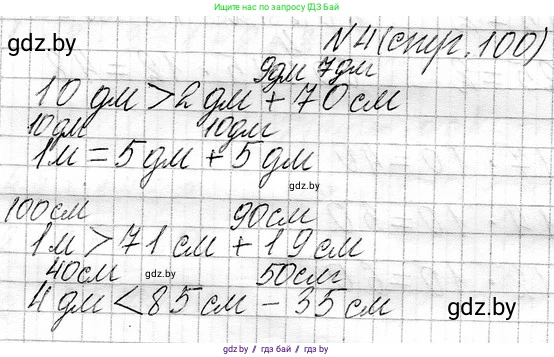 Ищите нас по запросу/GDZ.BY
gdz.by
N4 (стр. 100)
9дм 7дм
10 дм > 2 дм + 70 см
10дм 10дм
1м = 5 дм + 5 дм
gdz.by
100см 90см
1м > 71 см + 19 см
40см gdz.by 50см
4 дм < 85 см - 35 см
gdz.by
gdz.by / гдз бай / гдз.бай